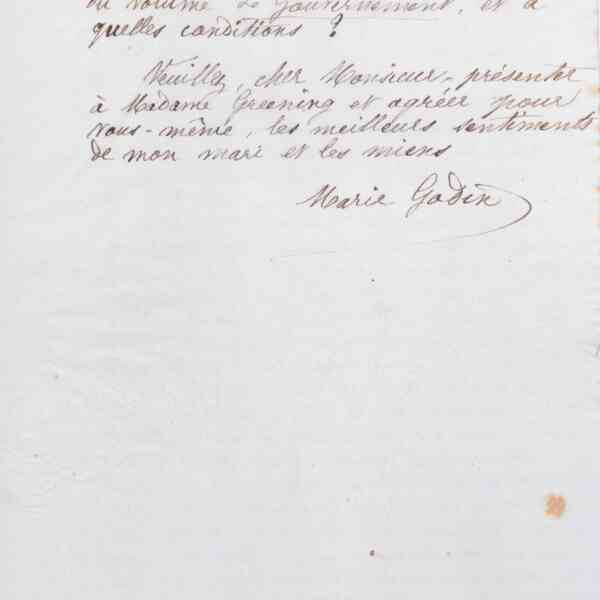 du volume Le Gouvernement, et à
quelles conditions ?
Veuillez, cher Monsieur, présenter
à Madame Greening et agréer pour
vous-même, les meilleurs sentiments
de mon mari et les miens
Marie Godin